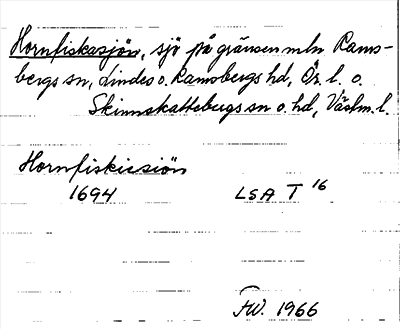 Hornfiskasjön, sjö på gränsen mln Rams-
bergs sn, Lindes o. Ramsbergs hd, Ör. l. o.
Skinnskattebergs sn o. hd, Västm. l.
Hornfiskiesiön
1694 LSA T 16
FW. 1966